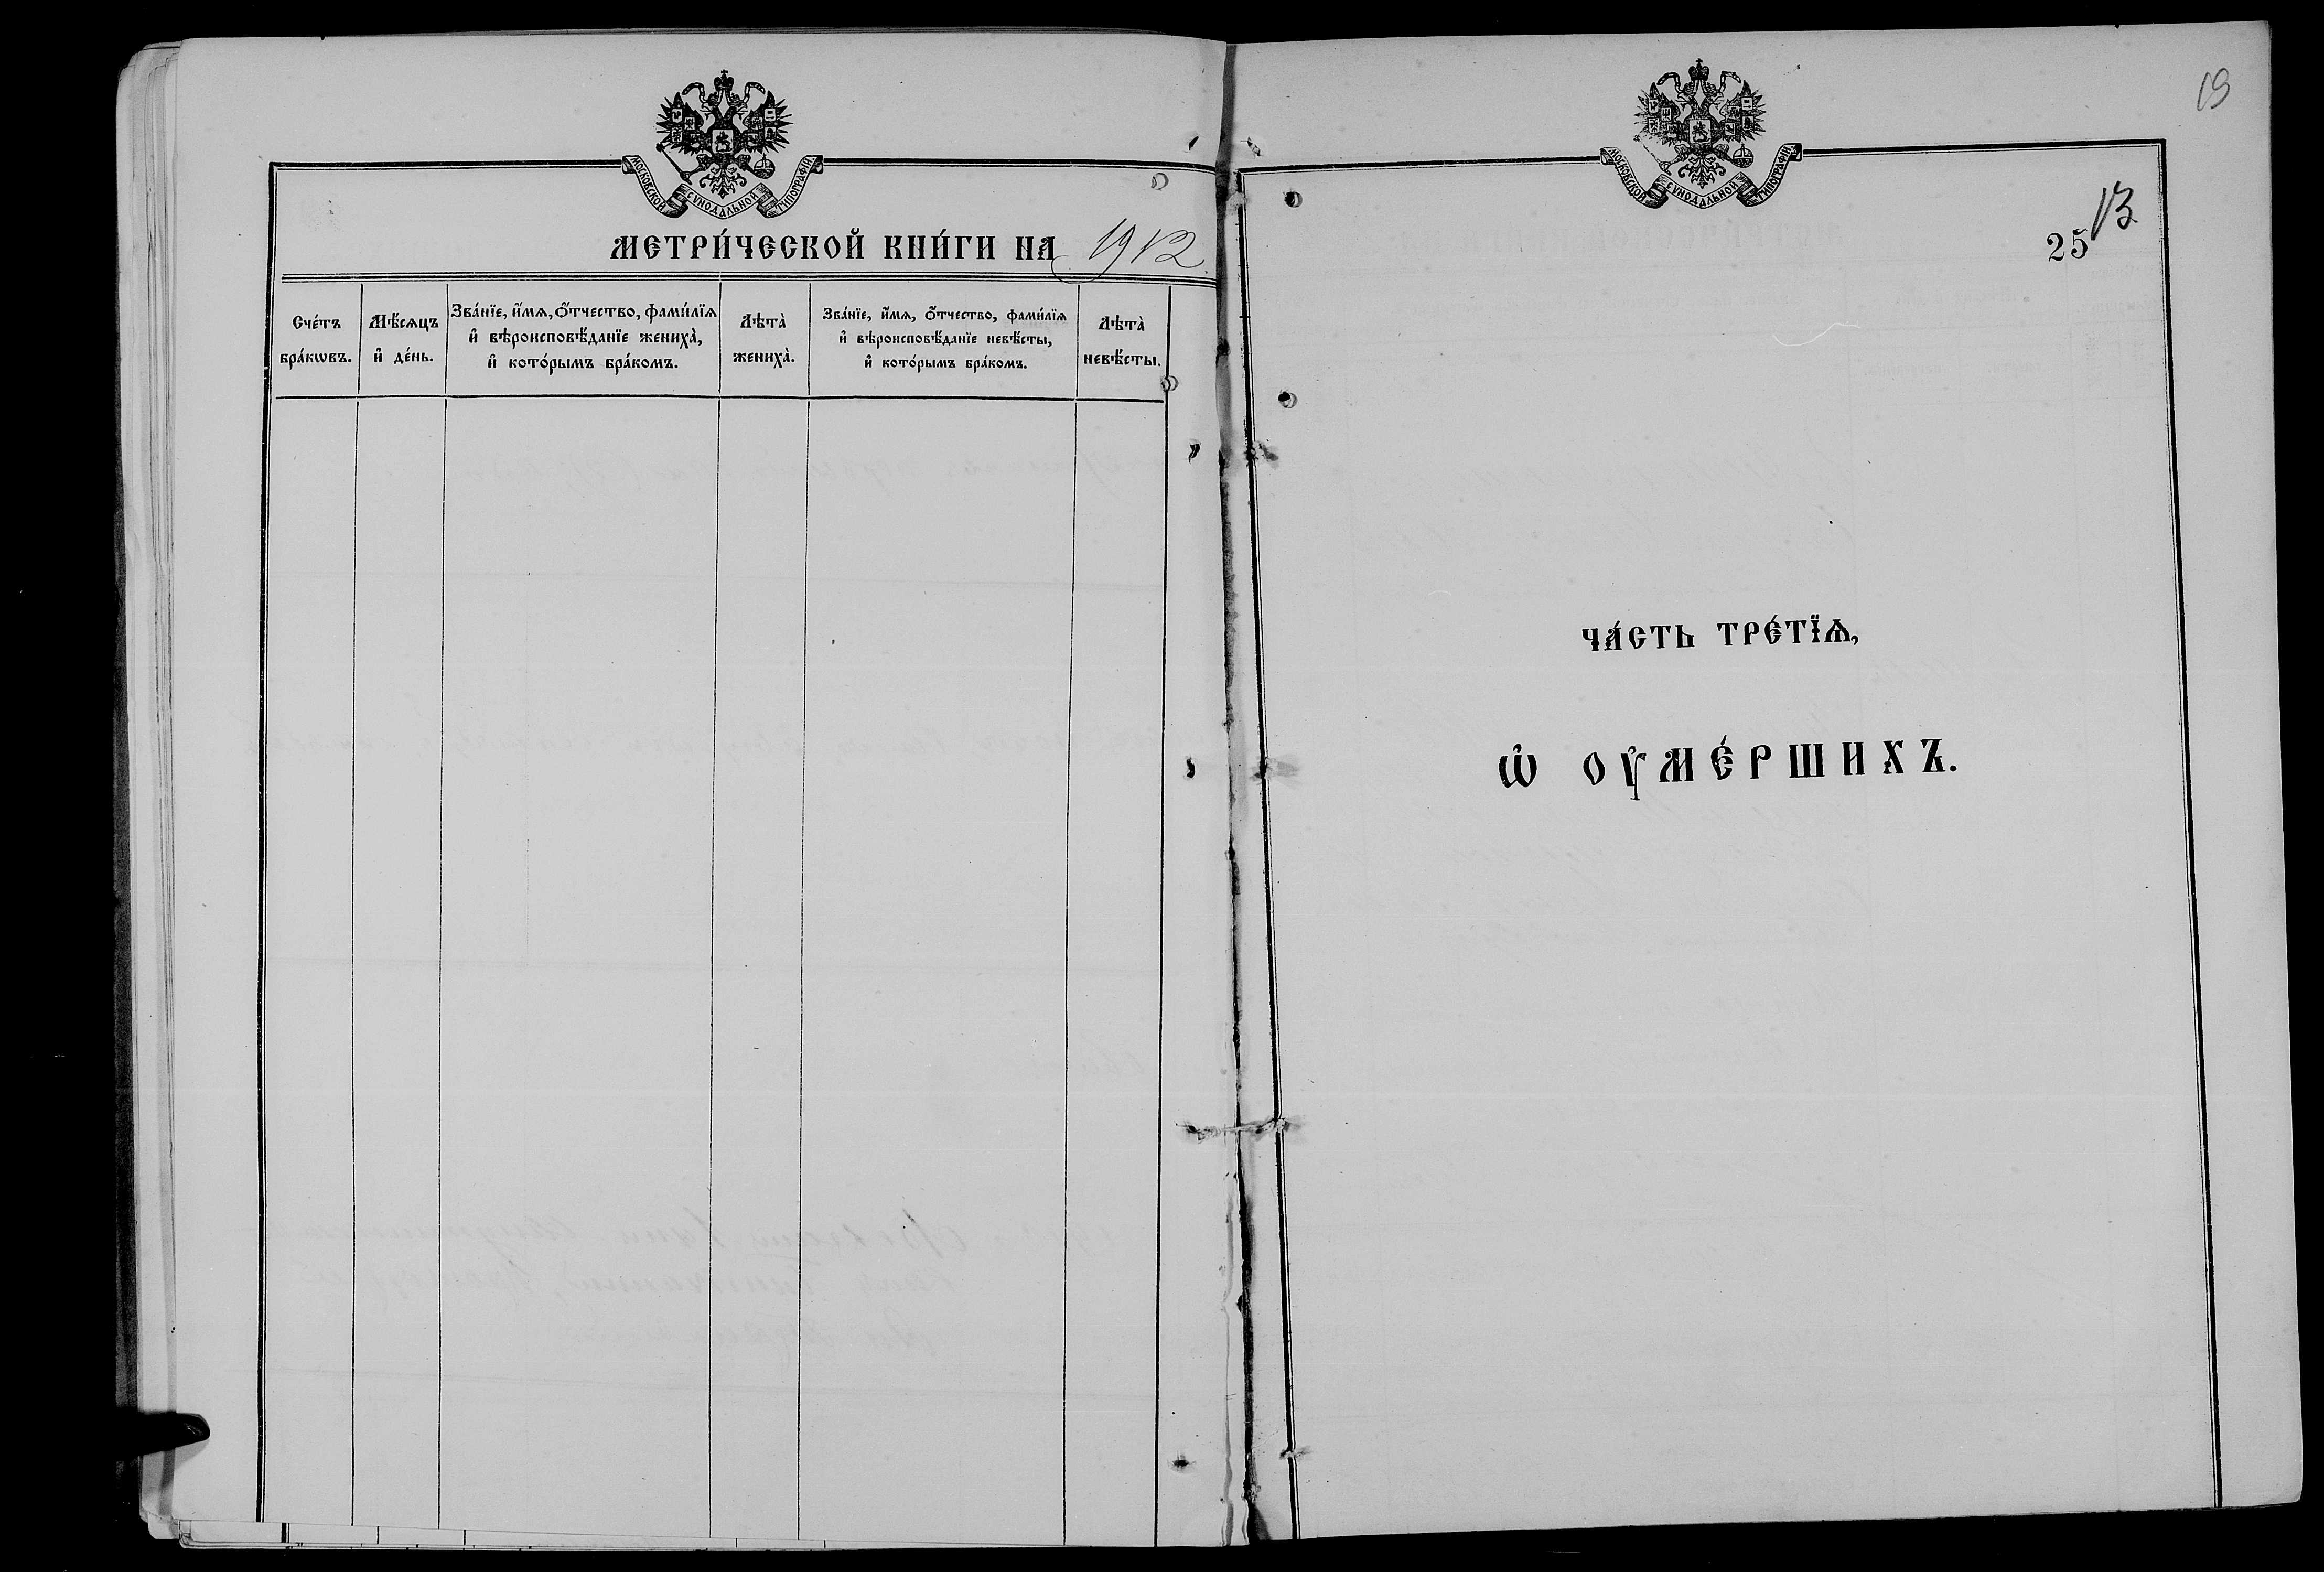 МОСКОВСКОЙ СѴНОДАЛЬНОЙ ТИПОГРАФІИ
МЕТРИ́ЧЕСКОЙ КНИ́ГИ НА 1912
Сче́тъ бра́кѡвъ.
Мѣ́сѧцъ и҆ де́нь.
Зва́нїе, и҆́мѧ, о҆́тчество, фами́лїѧ
и҆ вѣроисповѣ́данїе жениха̀,
и҆ кото́рымъ бра́комъ.
Лѣта̀ жениха̀.
Зва́нїе, и҆́мѧ, о҆́тчество, фами́лїѧ
и҆ вѣроисповѣ́данїе невѣ́сты,
и҆ кото́рымъ бра́комъ.
Лѣта̀ невѣ́сты.
19
МОСКОВСКОЙ СѴНОДАЛЬНОЙ ТИПОГРАФІИ
13
25
ЧА́СТЬ ТРЕ́ТЇѦ,
Ѡ҆ ОУ҆МЕ́РШИХЪ.